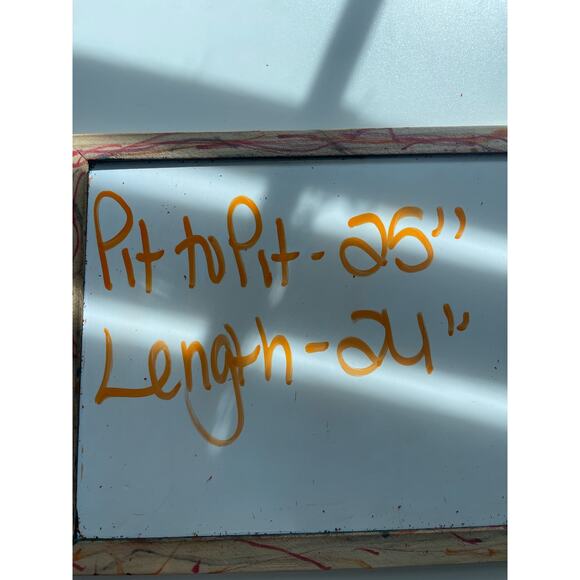 Pit to Pit - 25"
Length - 24"